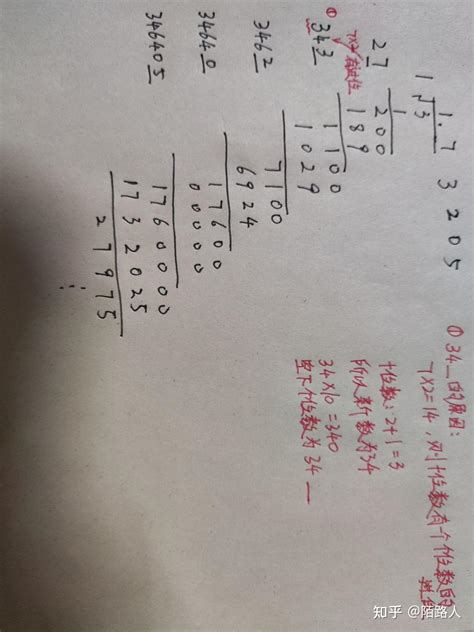 1. 7 3 2 0 5
1√3
1
27 200
7×2 有进位
189
①
343 1100
1029
3462 7100
6924
34640 17600
00000
346405 1760000
1732025
27975
⋮
①34_的原因:
7×2=14, 则十位数有一个个位数的
进位
十位数: 2+1=3
所以新数为34
34×10=340
空下个位数为34_
知乎 @陌路人